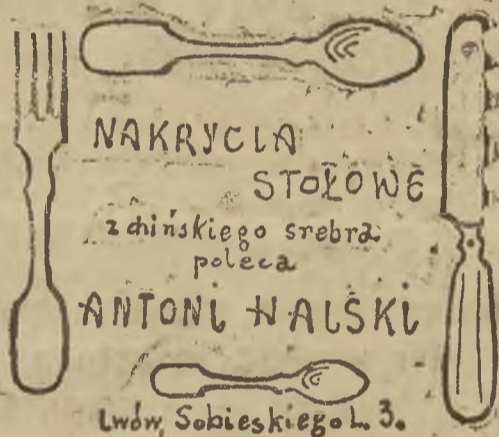 NAKRYCIA
STOŁOWE
z chińskiego srebra
poleca
ANTONI HALSKI
Lwów, Sobieskiego L. 3.